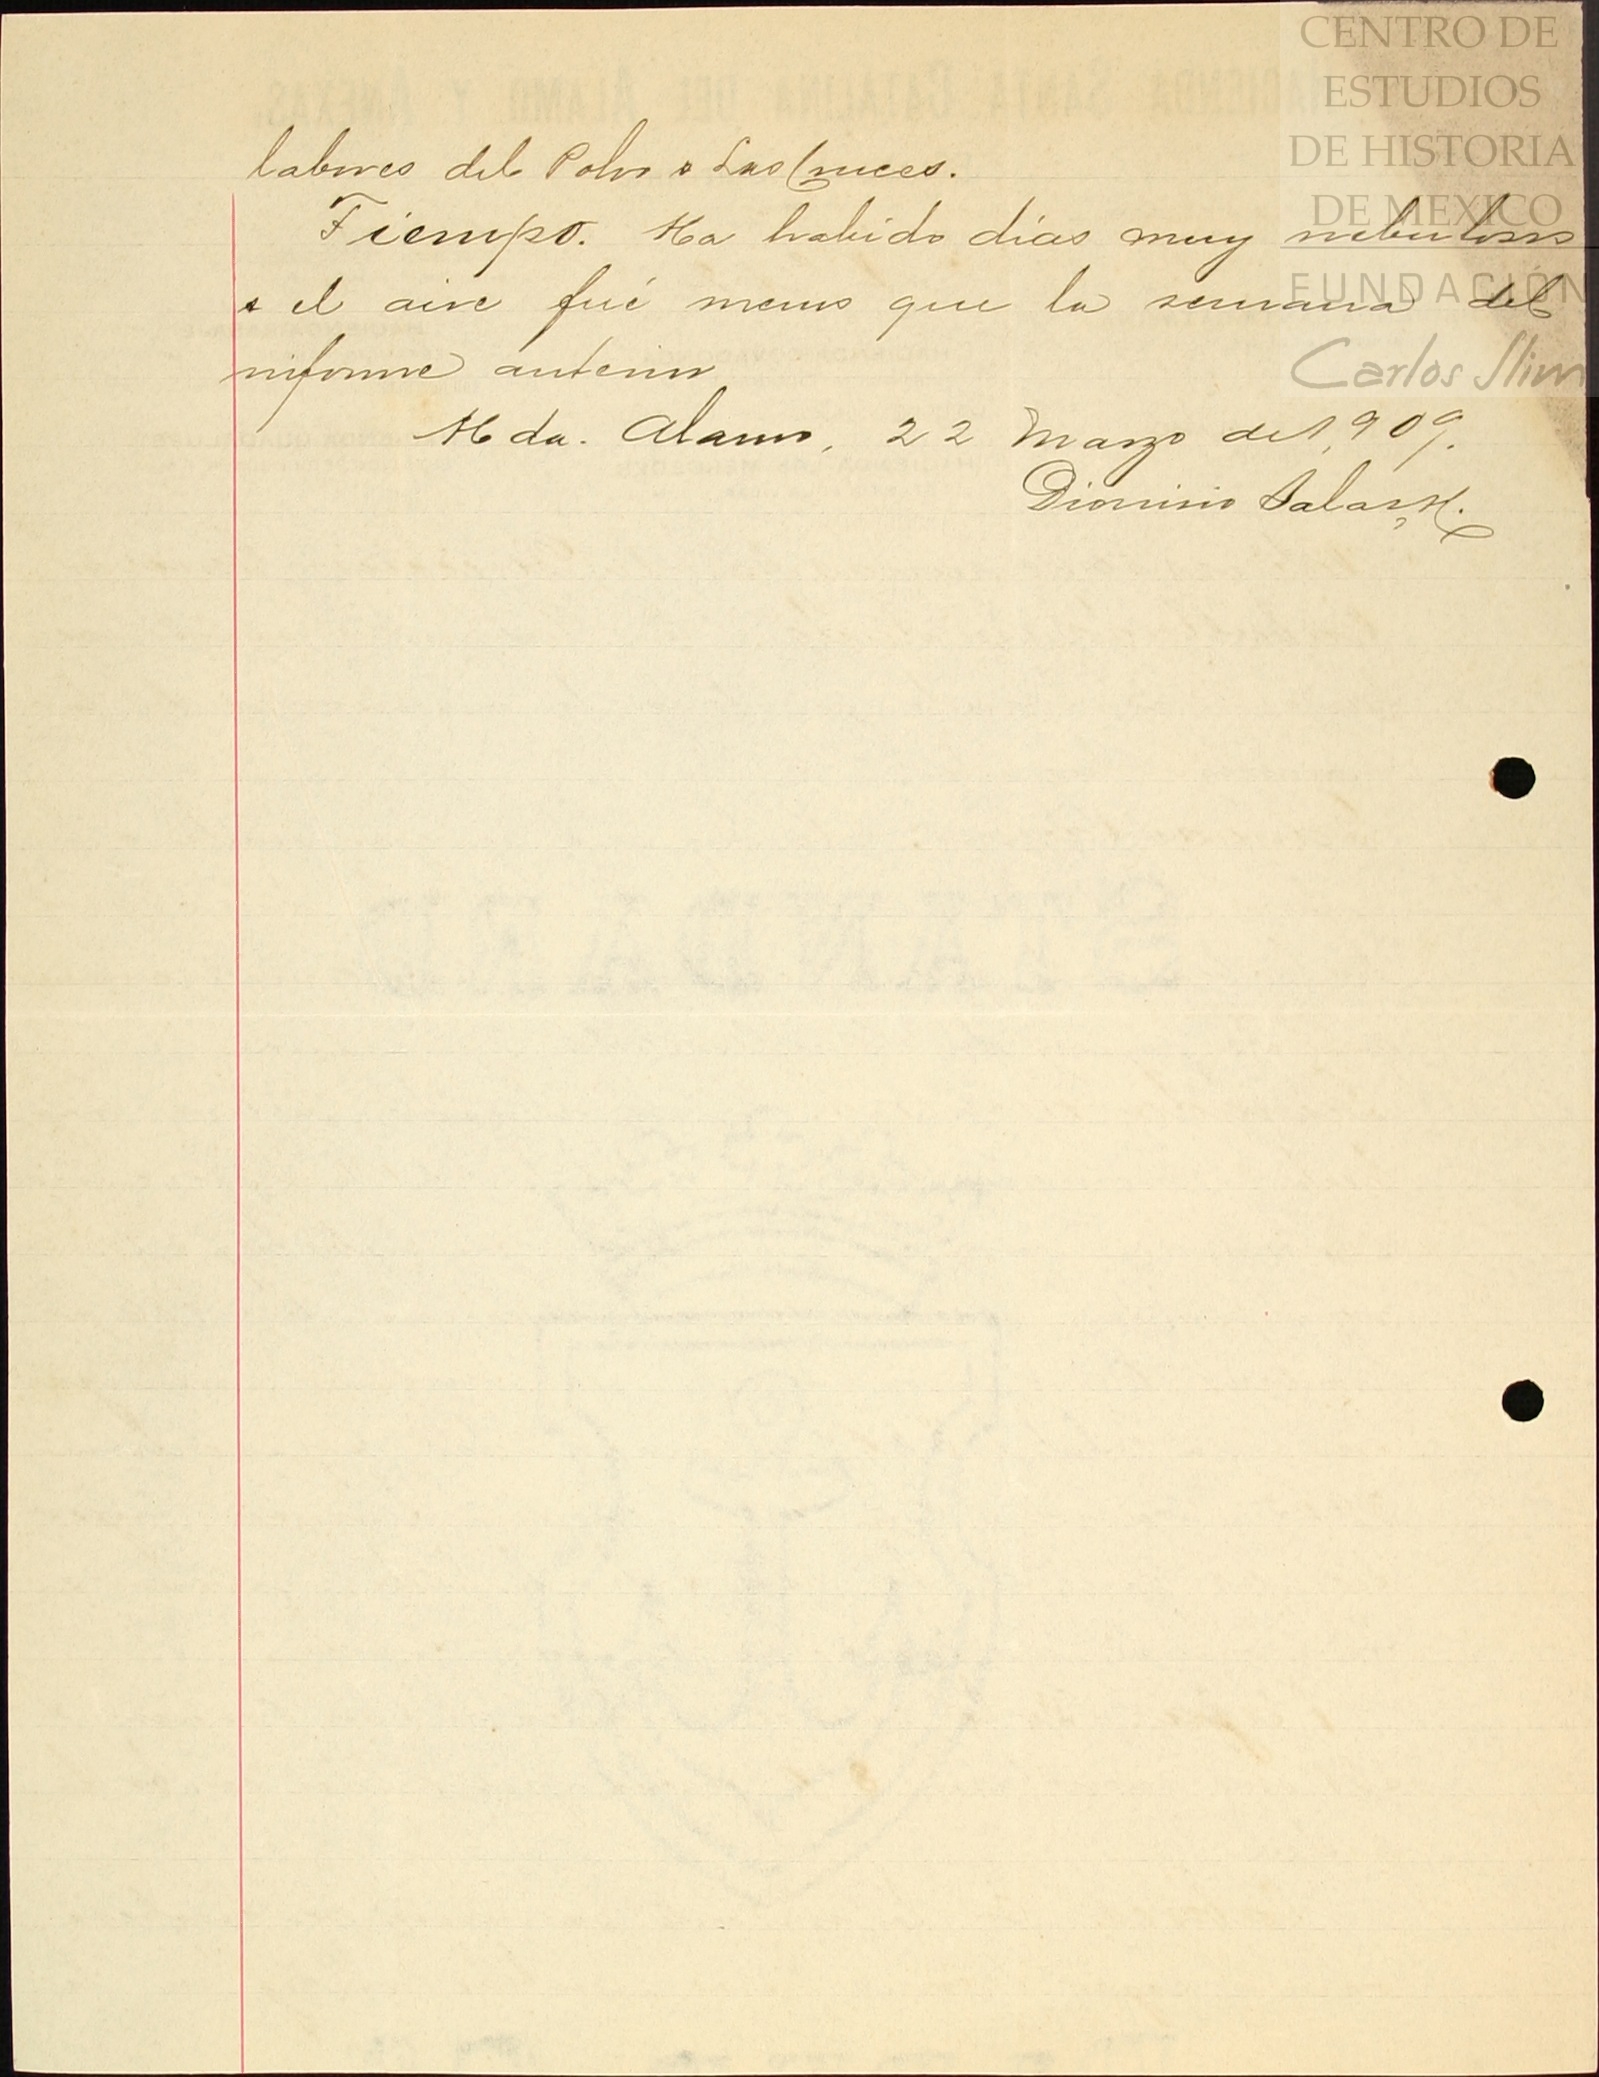 CENTRO DE
ESTUDIOS
DE HISTORIA
DE MEXICO
FUNDACIÓN
Carlos Slim
labores del Polvo y Las Cruces.
Tiempo. Ha habido días muy nebulosos
y el aire fué menos que la semana del
informe anterior
Hda. Alamo, 22 Marzo de 1,909.
Dionisio Salas H.